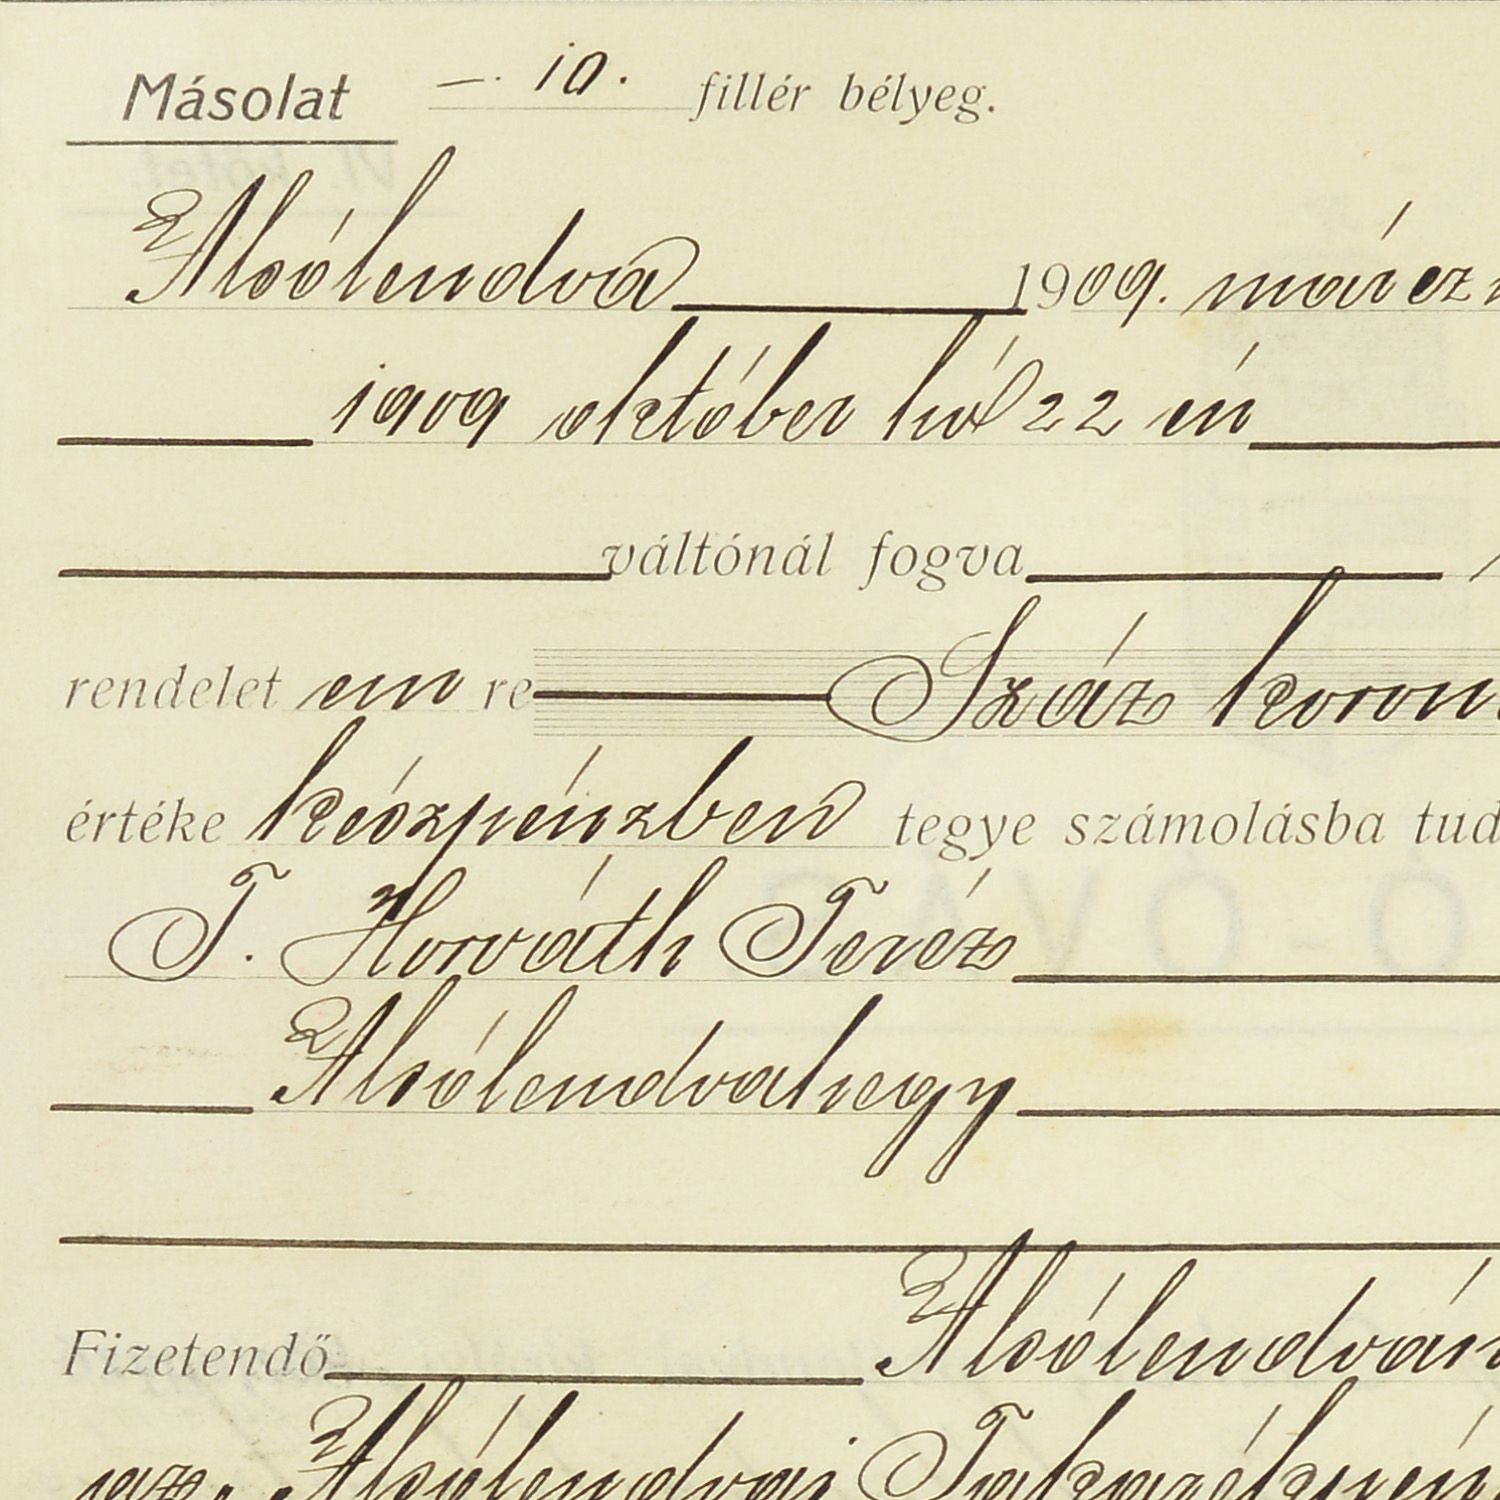 Másolat —. 10. fillér bélyeg.
Alsólendva 1909. márcz
1909 október hó 22 én
váltónál fogva
rendelet em re Száz koron
értéke készpénzben tegye számolásba tud
T. Horváth Teréz
Alsólendvahegy
Fizetendő Alsólendván
az. Alsólendvai Takarékpén